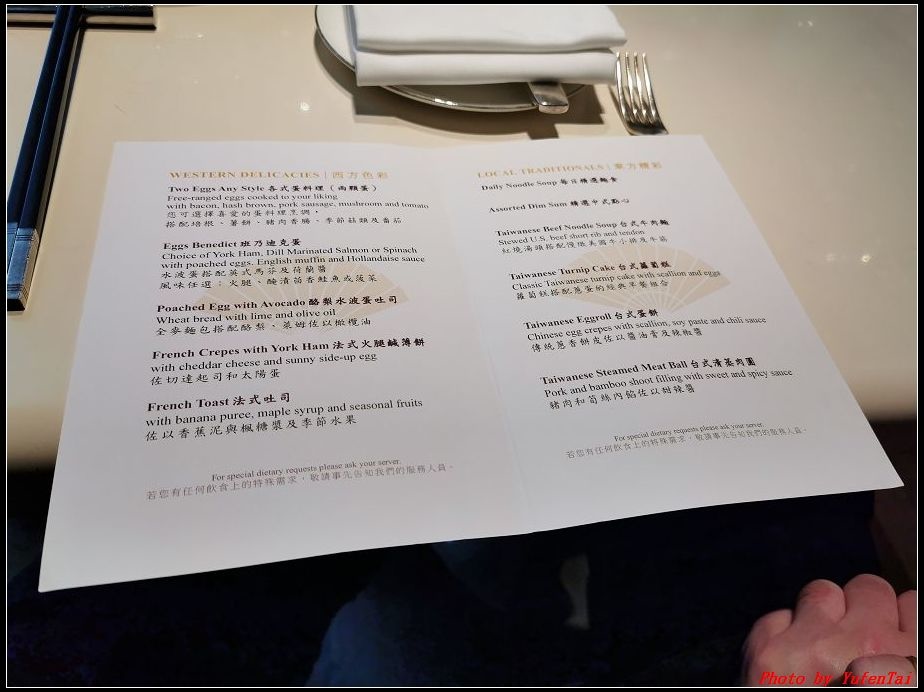 WESTERN DELICACIES | 西方色彩
Two Eggs Any Style 各式蛋料理（兩顆蛋）
Free-ranged eggs cooked to your liking
with bacon, hash brown, pork sausage, mushroom and tomato
您可選擇喜愛的蛋料理烹調，
搭配培根、薯餅、豬肉香腸、季節菇類及番茄
Eggs Benedict 班乃迪克蛋
Choice of York Ham, Dill Marinated Salmon or Spinach
with poached eggs, English muffin and Hollandaise sauce
水波蛋搭配英式馬芬及荷蘭醬
風味任選：火腿、醃漬茴香鮭魚或菠菜
Poached Egg with Avocado 酪梨水波蛋吐司
Wheat bread with lime and olive oil
全麥麵包搭配酪梨、萊姆佐以橄欖油
French Crepes with York Ham 法式火腿鹹薄餅
with cheddar cheese and sunny side-up egg
佐切達起司和太陽蛋
French Toast 法式吐司
with banana puree, maple syrup and seasonal fruits
佐以香蕉泥與楓糖漿及季節水果
For special dietary requests please ask your server.
若您有任何飲食上的特殊需求，敬請事先告知我們的服務人員。
LOCAL TRADITIONALS | 東方精彩
Daily Noodle Soup 每日精選麵食
Assorted Dim Sum 精選中式點心
Taiwanese Beef Noodle Soup 台式牛肉麵
Stewed U.S. beef short rib and tendon
紅燒湯頭搭配慢燉美國牛小排及牛筋
Taiwanese Turnip Cake 台式蘿蔔糕
Classic Taiwanese turnip cake with scallion and eggs
蘿蔔糕搭配蔥蛋的經典早餐組合
Taiwanese Eggroll 台式蛋餅
Chinese egg crepes with scallion, soy paste and chili sauce
傳統蔥香餅皮佐以醬油膏及辣椒醬
Taiwanese Steamed Meat Ball 台式清蒸肉圓
Pork and bamboo shoot filling with sweet and spicy sauce
豬肉和筍絲內餡佐以甜辣醬
For special dietary requests please ask your server.
若您有任何飲食上的特殊需求，敬請事先告知我們的服務人員。
Photo by YufenTai